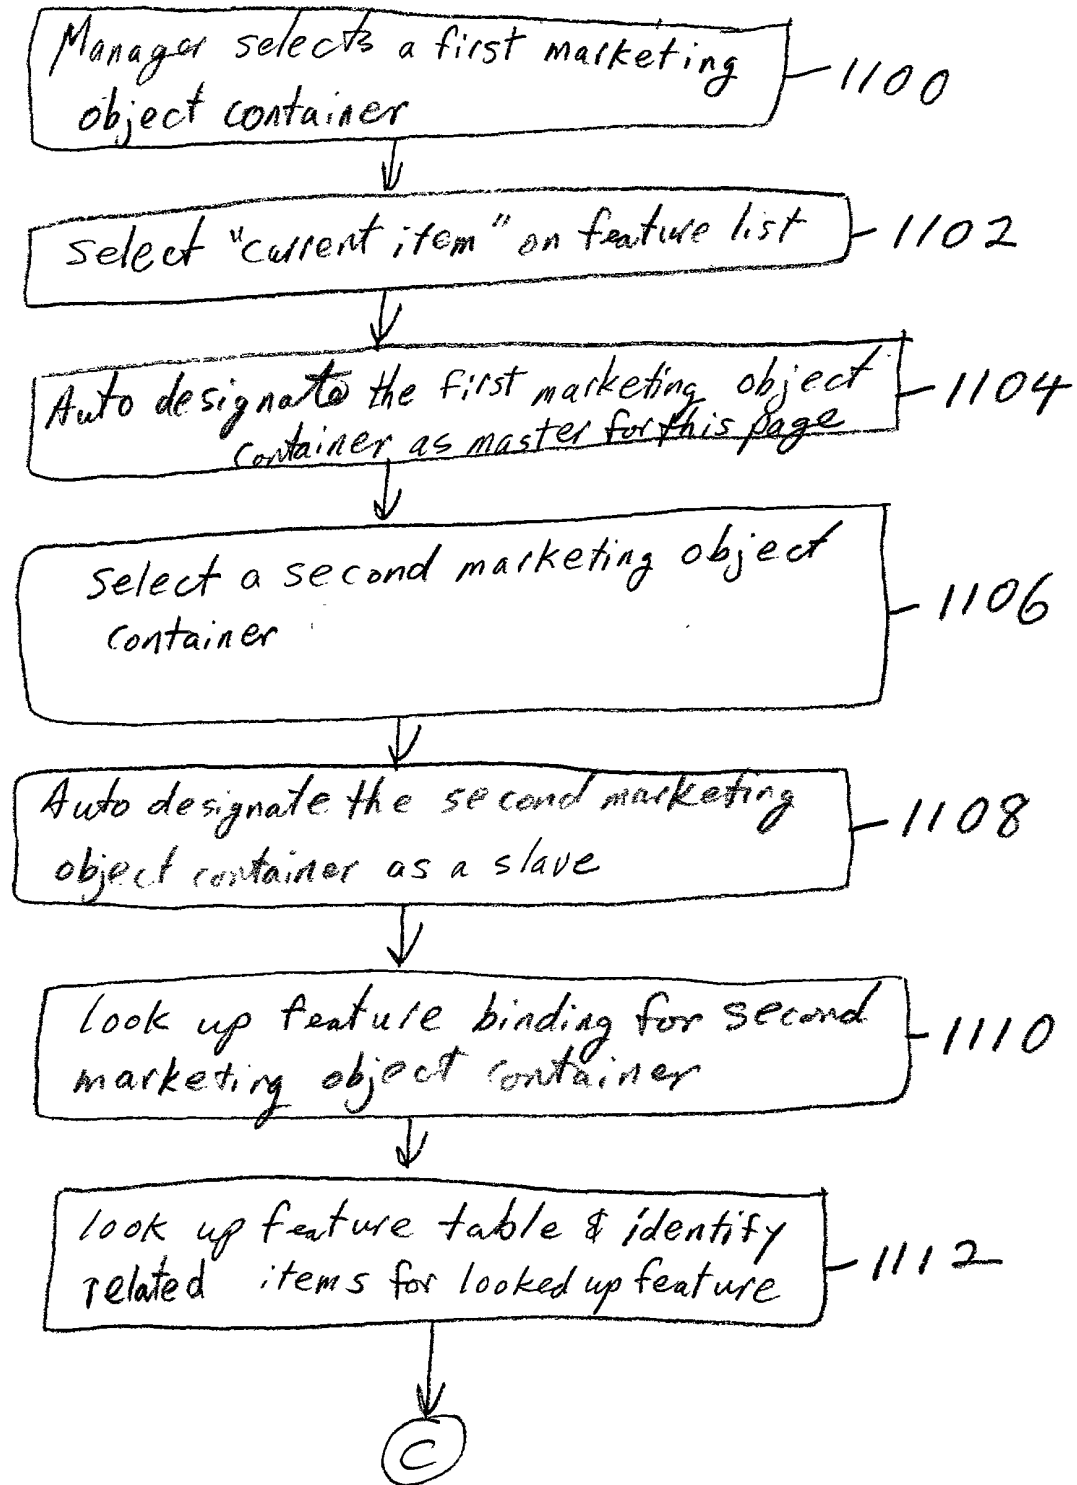 Manager selects a first marketing
object container
1100
select "current item" on feature list
1102
Auto designate the first marketing object
container as master for this page
1104
select a second marketing object
container
1106
Auto designate the second marketing
object container as a slave
1108
look up feature binding for second
marketing object container
1110
look up feature table & identify
related items for looked up feature
1112
C